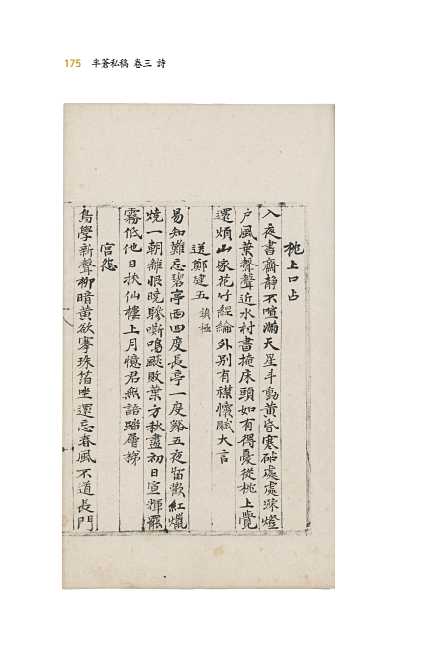 175 半蒼私稿 卷三 詩
枕上口占
入夜書齋靜不喧滿天星斗動黃昏寒砧處處疎燈
戶風葉聲聲近水村書掩床頭如有得憂從枕上覺
還煩山家花竹經綸外別有襟懷賦大言
送鄭建五 鎮極
易知難忘碧亭西四度長亭一度谿五夜留歡紅燭
燒一朝離恨曉驂嘶鳴颷敗葉方秋盡初日宣輝霢
霧低他日扶仙樓上月憶君無語蹋層梯
宮怨
鳥學新聲柳暗黃欲搴珠箔坐還忘春風不道長門